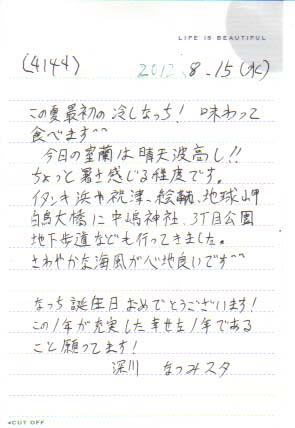 LIFE IS BEAUTIFUL
(4144) 2012.8.15(水)
この夏最初の冷しなっち! 味わって
食べます^^
今日の室蘭は晴天波高し!!
ちょっと暑さ感じる程度です。
イタンキ浜や祝津、絵鞆、地球岬
白鳥大橋に中嶋神社、3丁目公園
地下歩道なども行ってきました。
さわやかな海風が心地良いです^^
なっち誕生日おめでとうございます!
この1年が充実した幸せな1年である
こと願ってます!
深川 なつみスタ
◂CUT OFF